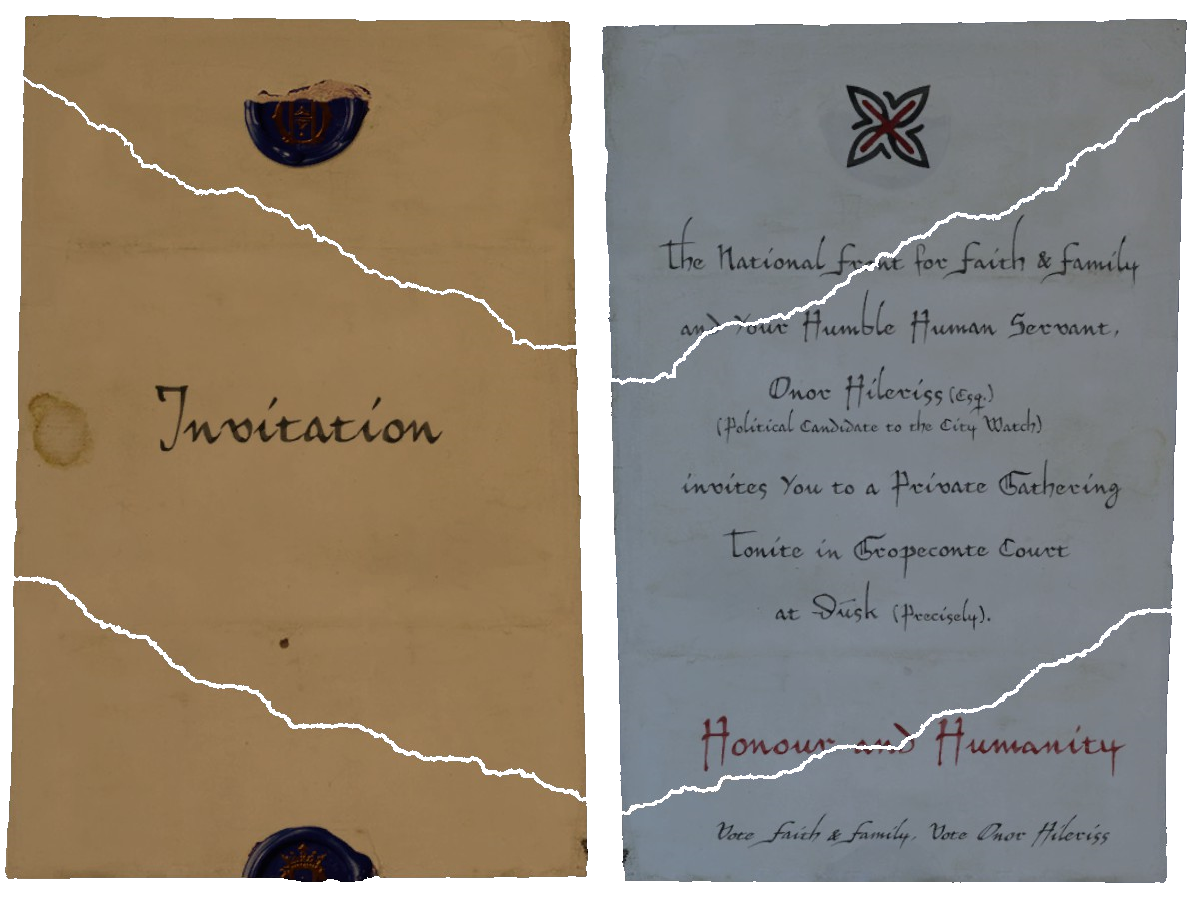 Invitation
The National Front for Faith & Family
and Your Humble Human Servant,
Onor Hileriss (Esq.)
(Political Candidate to the City Watch)
invites You to a Private Gathering
Tonite in Gropeconte Court
at Dusk (Precisely).
Honour and Humanity
Vote Faith & Family, Vote Onor Hileriss